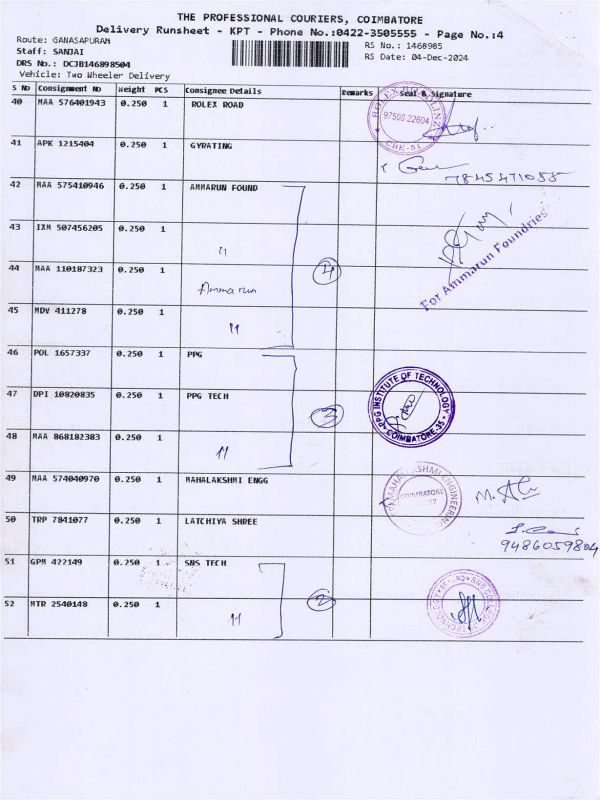 THE PROFESSIONAL COURIERS, COIMBATORE
Delivery Runsheet - KPT - Phone No.:0422-3505555 - Page No.:4
Route: GANASAPURAM
RS No.: 1468985
Staff: SANJAI
RS Date: 04-Dec-2024
DRS No.: DCJB146898504
Vehicle: Two Wheeler Delivery
S No Consignment No Weight PCS Consignee Details Remarks Seal & Signature
40 MAA 576401943 0.250 1 ROLEX ROAD
97508 22604
CBE-01
41 APK 1215404 0.250 1 GYRATING
7845471055
42 MAA 575410946 0.250 1 AMMARUN FOUND
43 IXM 507456205 0.250 1 11
For Ammarun Foundries
44 MAA 110187323 0.250 1 Ammarun 4
45 MDV 411278 0.250 1 11
46 POL 1657337 0.250 1 PPG
47 DPI 10820835 0.250 1 PPG TECH 3
PPG INSTITUTE OF TECHNOLOGY
COIMBATORE-35
48 MAA 868182383 0.250 1 11
49 MAA 574040970 0.250 1 MAHALAKSHMI ENGG
MAHALAKSHMI ENGINEERING
COIMBATORE
50 TRP 7841077 0.250 1 LATCHIYA SHREE
9486059804
51 GPM 422149 0.250 1 SNS TECH
52 MTR 2540148 0.250 1 11 2
SNS COLLEGE OF TECHNOLOGY